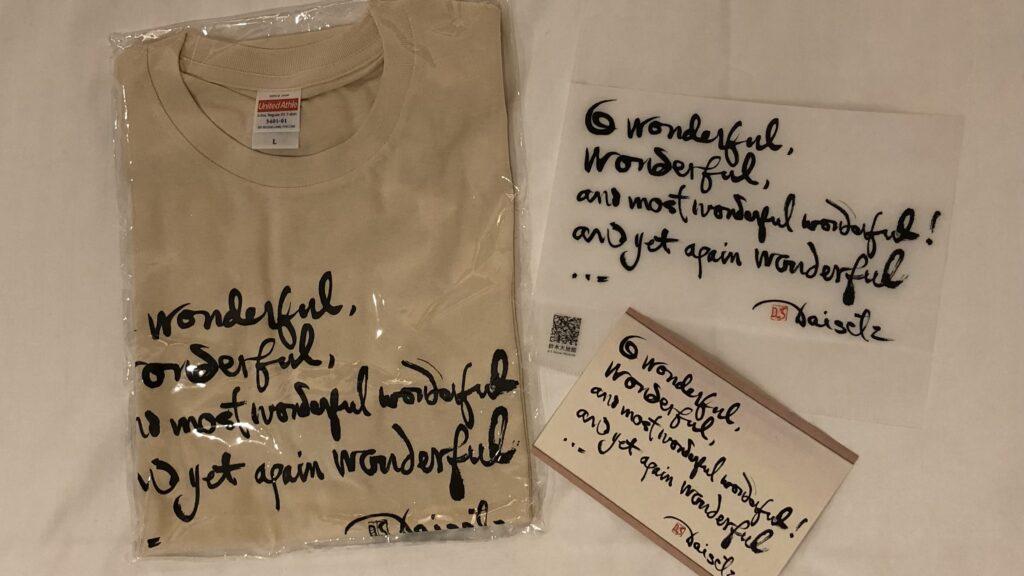 United Athle
5401-01
L
wonderful,
onderful,
most wonderful wonderful
yet again wonderful
Daisetz
O wonderful,
wonderful,
and most wonderful wonderful!
and yet again wonderful
...
Daisetz
鈴木大拙館
O wonderful,
wonderful,
and most wonderful wonderful!
and yet again wonderful
...
Daisetz